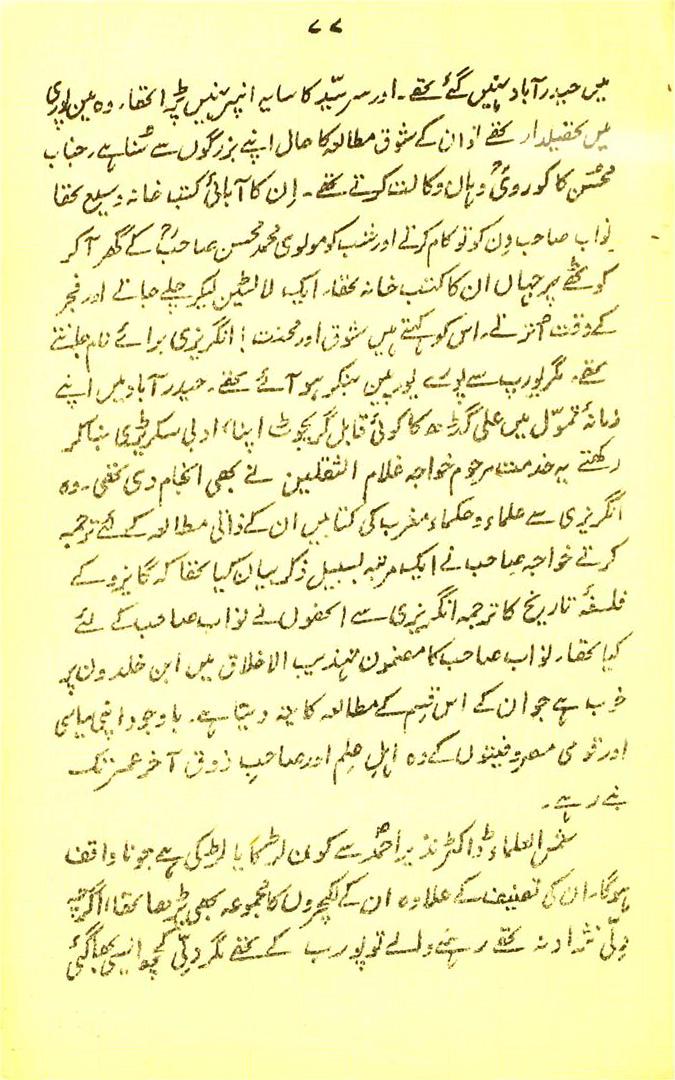 ۷۷
میں حیدرآباد نہیں گئے تھے۔ اور سر سیّد کا سایہ انپر نہیں پڑا تھا۔ وہ مین پوری
میں تحصیلدار تھے اُن کے شوق مطالعہ کا حال اپنے بزرگوں سے سُنا ہے۔ جناب
محسن کاکورویؒ وہاں وکالت کرتے تھے۔ اِن کا آبائی کتب خانہ وسیع تھا
نواب صاحب دِن کو تو کام کرتے اور شب کو مولوی محمد محسن صاحبؒ کے گھر آکر
کوٹھے پر جہاں ان کا کتب خانہ تھا۔ ایک لالٹین لیکر چلے جاتے اور فجر
کے وقت اُترتے۔ اس کو کہتے ہیں شوق اور محنت! انگریزی برائے نام جانتے
تھے۔ مگر یورپ سے پورے یورپین بنکر ہو آئے تھے۔ حیدرآباد میں اپنے
زمانۂ تموّل میں علی گڑھ کا کوئی قابل گریجوٹ اپنا ادبی سکریٹری بنا کر
رکھتے یہ خدمت مرحوم خواجہ غلام الثقلین نے بھی انجام دی تھی۔ وہ
انگریزی سے علماء و حکماء مغرب کی کتابیں ان کے ذاتی مطالعہ کے لئے ترجمہ
کرتے خواجہ صاحب نے ایک مرتبہ بسبیل ذکر بیان کیا تھا کہ گایزو کے
فلسفۂ تاریخ کا ترجمہ انگریزی سے انھوں نے نواب صاحب کے لئے
کیا تھا۔ نواب صاحب کا مضمون تہذیب الاخلاق میں ابن خلدون پر
خوب ہے جو ان کے اس قسم کے مطالعہ کا پتہ دیتا ہے۔ باوجود اپنی سیاسی
اور قومی مصروفیتوں کے وہ اہلِ علم اور صاحبِ ذوق آخر عمر تک
بنے رہے۔
شمس العلماء ڈاکٹر نذیر احمدؒ سے کون لڑکا یا لڑکی ہے جو ناواقف
ہوگا۔ ان کی تصنیف کے علاوہ ان کے لکچروں کا مجموعہ بھی پڑھا تھا، اگرچہ
دلّی نژاد نہ تھے رہنے والے تو پورب کے تھے مگر دلّی کچھ ایسی بھا گئی